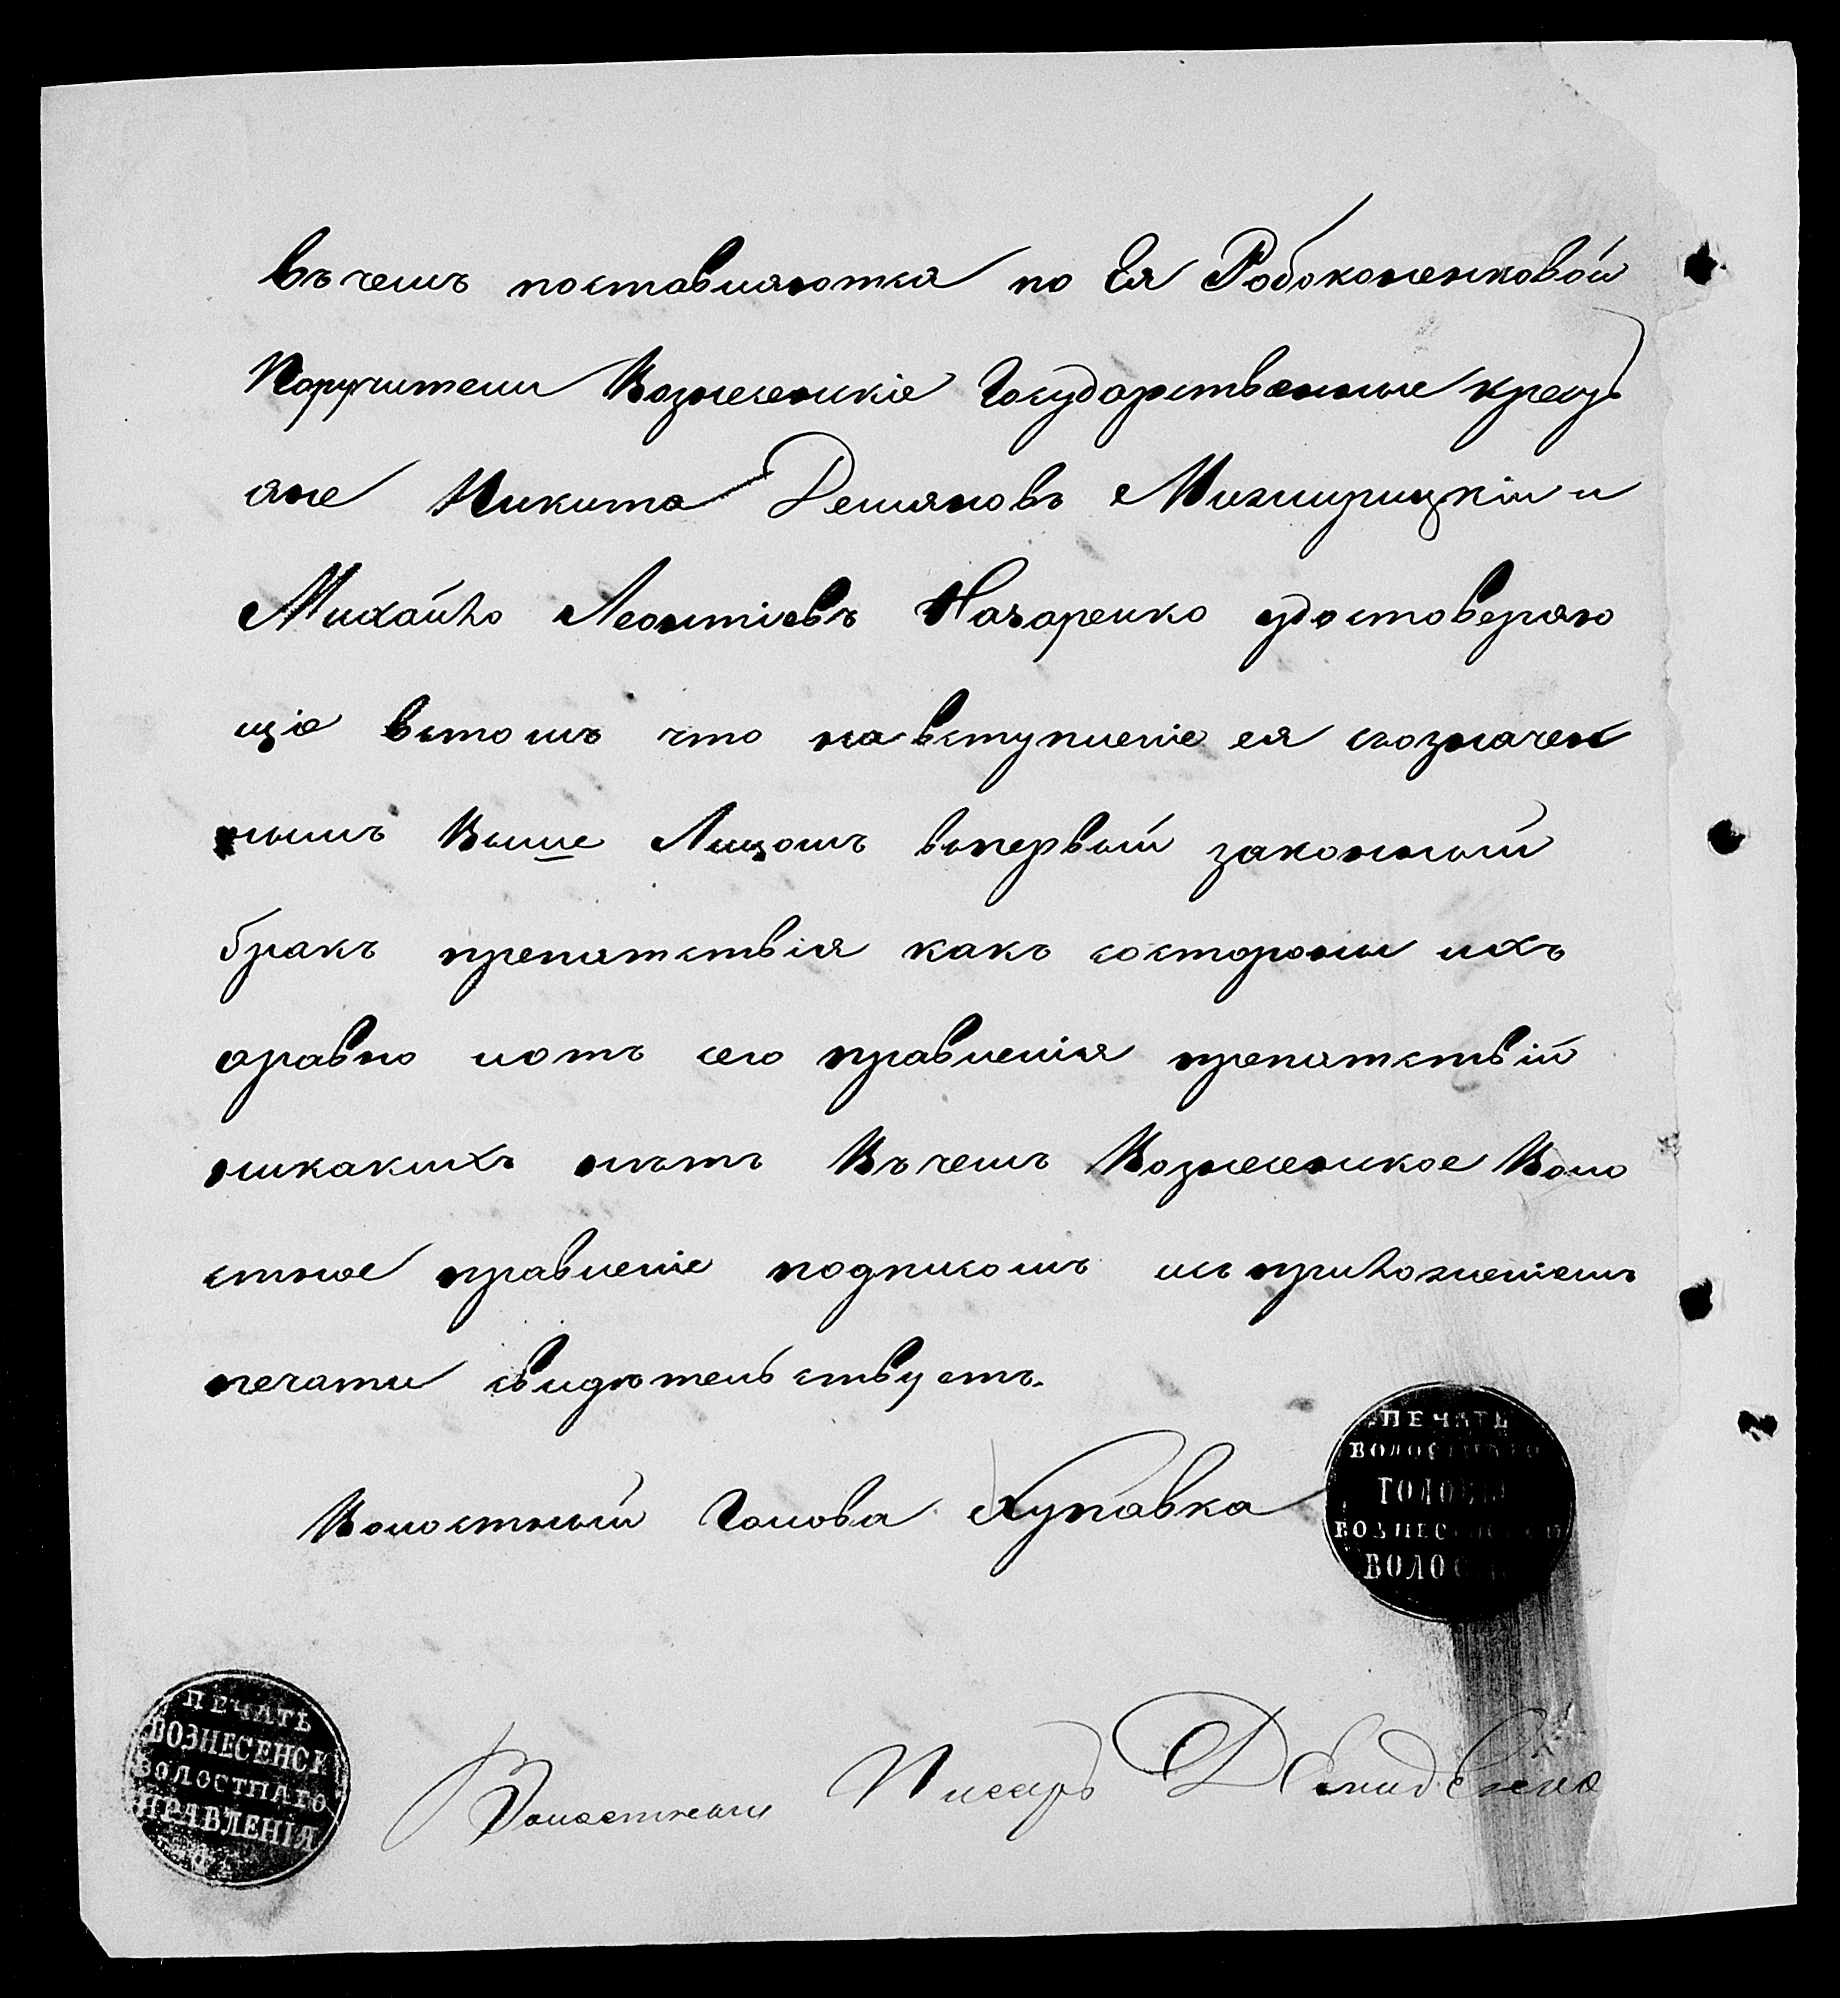 Въ чемъ поставляются по Ея Робоконенковой
Поручители Вознесенскіе Государственные кресть
яне Никита Демяновъ Мижирицкій и
Михайло Леонтіевъ Назаренко удостоверяю
щіе втомъ что навступленіе ея созначен
нымъ Выше Лицомъ впервый законный
бракъ препятствія какъ состороны ихъ
аравно иотъ сего правленія препятствій
никакихъ нѣтъ Въ чемъ Вознесенское Воло
стное правленіе подписомъ исъ приложеніемъ
печати свидѣтельствуетъ.
Волостный Голова Хупавка
ПЕЧАТЬ
ВОЛОСТНАГО
ГОЛОВЫ
ВОЗНЕСЕНСКОЙ
ВОЛОСТИ
ПЕЧАТЬ
ВОЗНЕСЕНСК
ВОЛОСТНАГО
ПРАВЛЕНІЯ
Волостный Писарь Демиденко